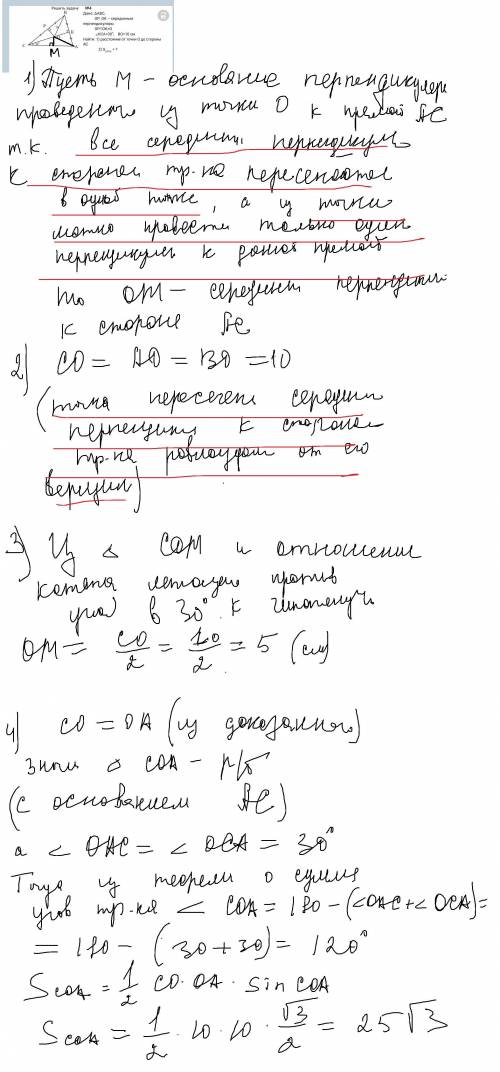 Решить задачу №4
Дано: ΔABC,
- серединные
перпендикуляры
BO=10 см
Найти: 1) расстояние от точки O до стороны
AC
M
1) Пусть M – основание перпендикуляра
проведенн из точки O к прямой AC
т.к. все середины перпендикул
к сторонам тр-ка пересекаются
в одной точке, а из точки
можно провести только один
перпендикуляр к данной прямой
то OM – середины перпендикул
к стороне AC
2) CO = AO = BO = 10
(точка пересечен середин
перпендикул к сторонам
тр-ка равноудал от его
вершин)
3) Из Δ COM и отношении
катета лежащ против
угла в 30° к гипотенуз
OM = CO/2 = 10/2 = 5 (см)
4) CO = OA (из доказанного)
значит Δ COA – р/б
(с основанием AC)
а ∠ OAC = ∠ OCA = 30°
Тогда из теорем о сумме
углов тр-ка ∠ COA = 180 – (∠OAC+∠OCA)=
= 180 – (30+30) = 120°
S COA = 1/2 CO · OA · sin COA
S COA = 1/2 · 10 · 10 · √3/2 = 25√3